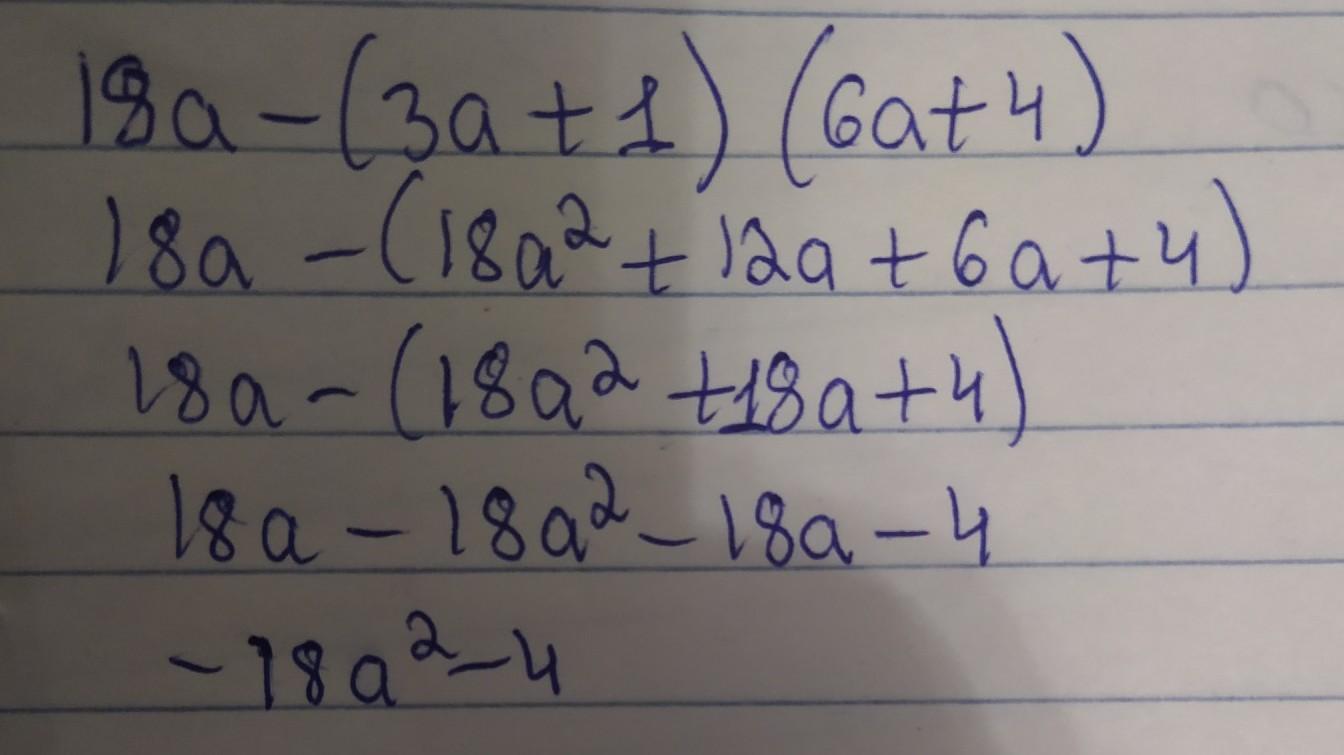 18a - (3a + 1) (6a + 4)
18a - (18a² + 12a + 6a + 4)
18a - (18a² + 18a + 4)
18a - 18a² - 18a - 4
- 18a² - 4